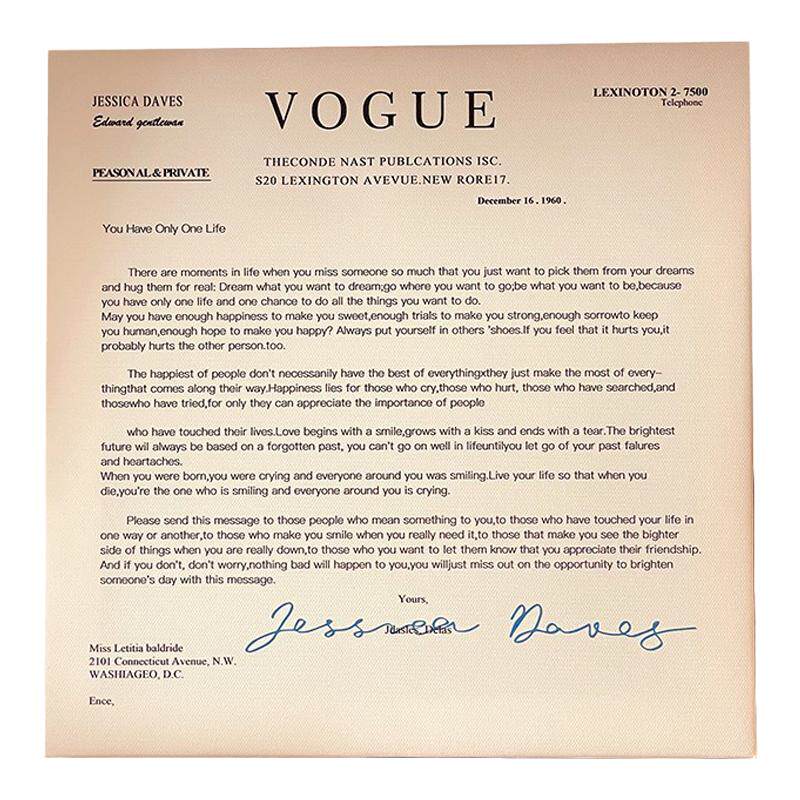 JESSICA DAVES
Edward gentlewan
VOGUE
LEXINOTON 2- 7500
Telephone
PEASONAL & PRIVATE
THECONDE NAST PUBLCATIONS ISC.
S20 LEXINGTON AVEVUE.NEW RORE17.
December 16 . 1960 .
You Have Only One Life
There are moments in life when you miss someone so much that you just want to pick them from your dreams
and hug them for real: Dream what you want to dream;go where you want to go;be what you want to be,because
you have only one life and one chance to do all the things you want to do.
May you have enough happiness to make you sweet,enough trials to make you strong,enough sorrowto keep
you human,enough hope to make you happy? Always put yourself in others 'shoes.If you feel that it hurts you,it
probably hurts the other person.too.
The happiest of people don't necessanily have the best of everythingxthey just make the most of every-
thingthat comes along their way.Happiness lies for those who cry,those who hurt, those who have searched,and
thosewho have tried,for only they can appreciate the importance of people
who have touched their lives.Love begins with a smile,grows with a kiss and ends with a tear.The brightest
future wil always be based on a forgotten past, you can't go on well in lifeuntilyou let go of your past falures
and heartaches.
When you were born,you were crying and everyone around you was smiling.Live your life so that when you
die,you're the one who is smiling and everyone around you is crying.
Please send this message to those people who mean something to you,to those who have touched your life in
one way or another,to those who make you smile when you really need it,to those that make you see the bighter
side of things when you are really down,to those who you want to let them know that you appreciate their friendship.
And if you don't, don't worry,nothing bad will happen to you,you willjust miss out on the opportunity to brighten
someone's day with this message.
Yours,
Jessica Daves
Miss Letitia baldride
2101 Connecticut Avenue, N.W.
WASHIAGEO, D.C.
Ence,